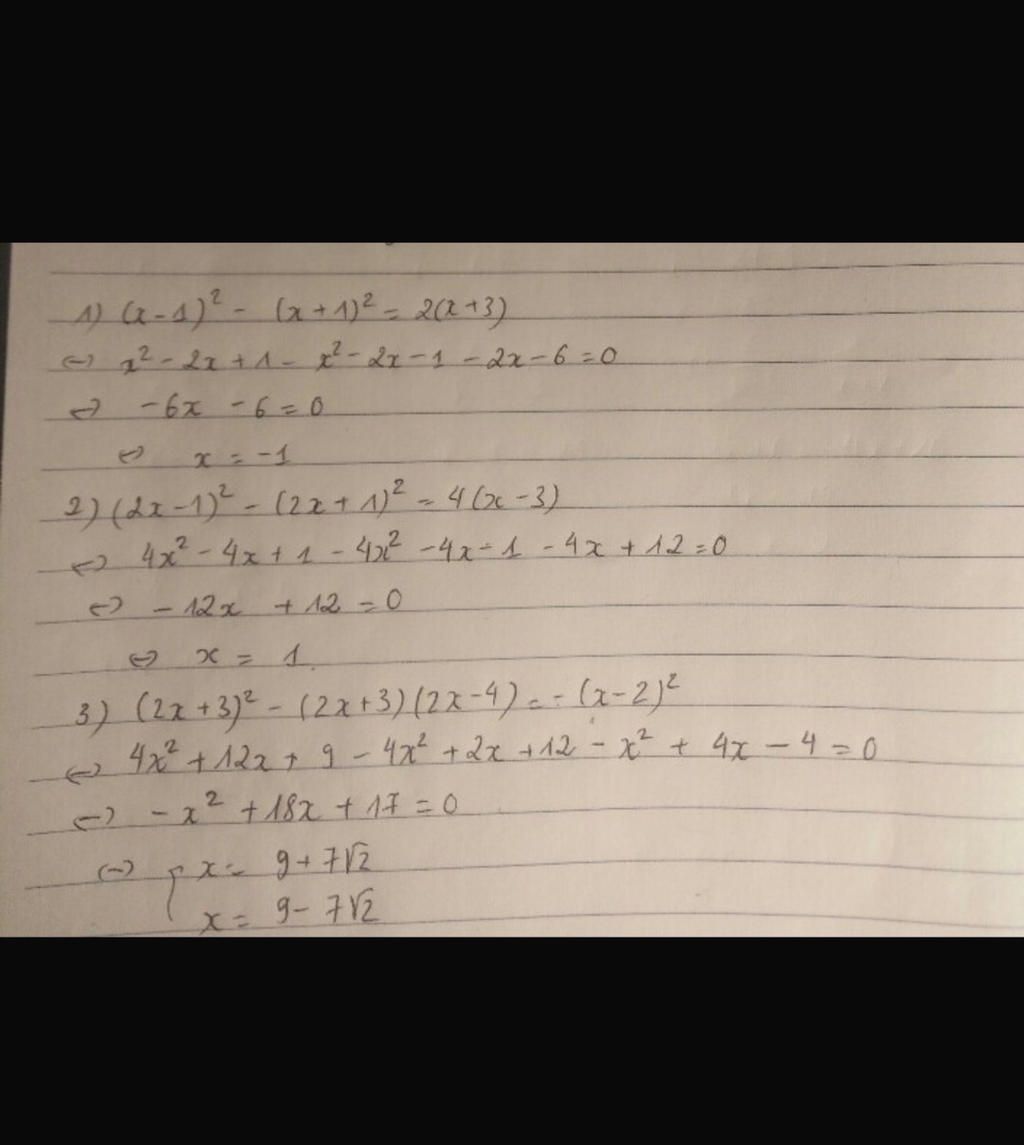 1) (x-1)² - (x+1)² = 2(x+3)
⇔ x² - 2x + 1 - x² - 2x - 1 - 2x - 6 = 0
⇔ -6x - 6 = 0
⇔ x = -1
2) (2x-1)² - (2x+1)² = 4(x-3)
⇔ 4x² - 4x + 1 - 4x² - 4x - 1 - 4x + 12 = 0
⇔ -12x + 12 = 0
⇔ x = 1.
3) (2x+3)² - (2x+3)(2x-4) = - (x-2)²
⇔ 4x² + 12x + 9 - 4x² + 2x + 12 - x² + 4x - 4 = 0
⇔ -x² + 18x + 17 = 0
⇔ [ x = 9 + 7√2
x = 9 - 7√2